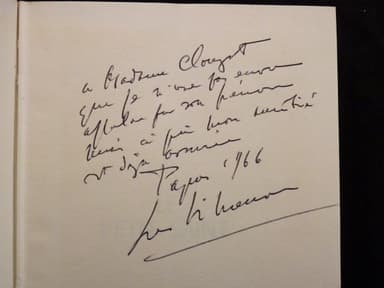 a Madame Clouzot
que je n'ose pas encore
appeler par son prénom
mais à qui mon amitié
est déjà acquise
1966
Georges Simenon